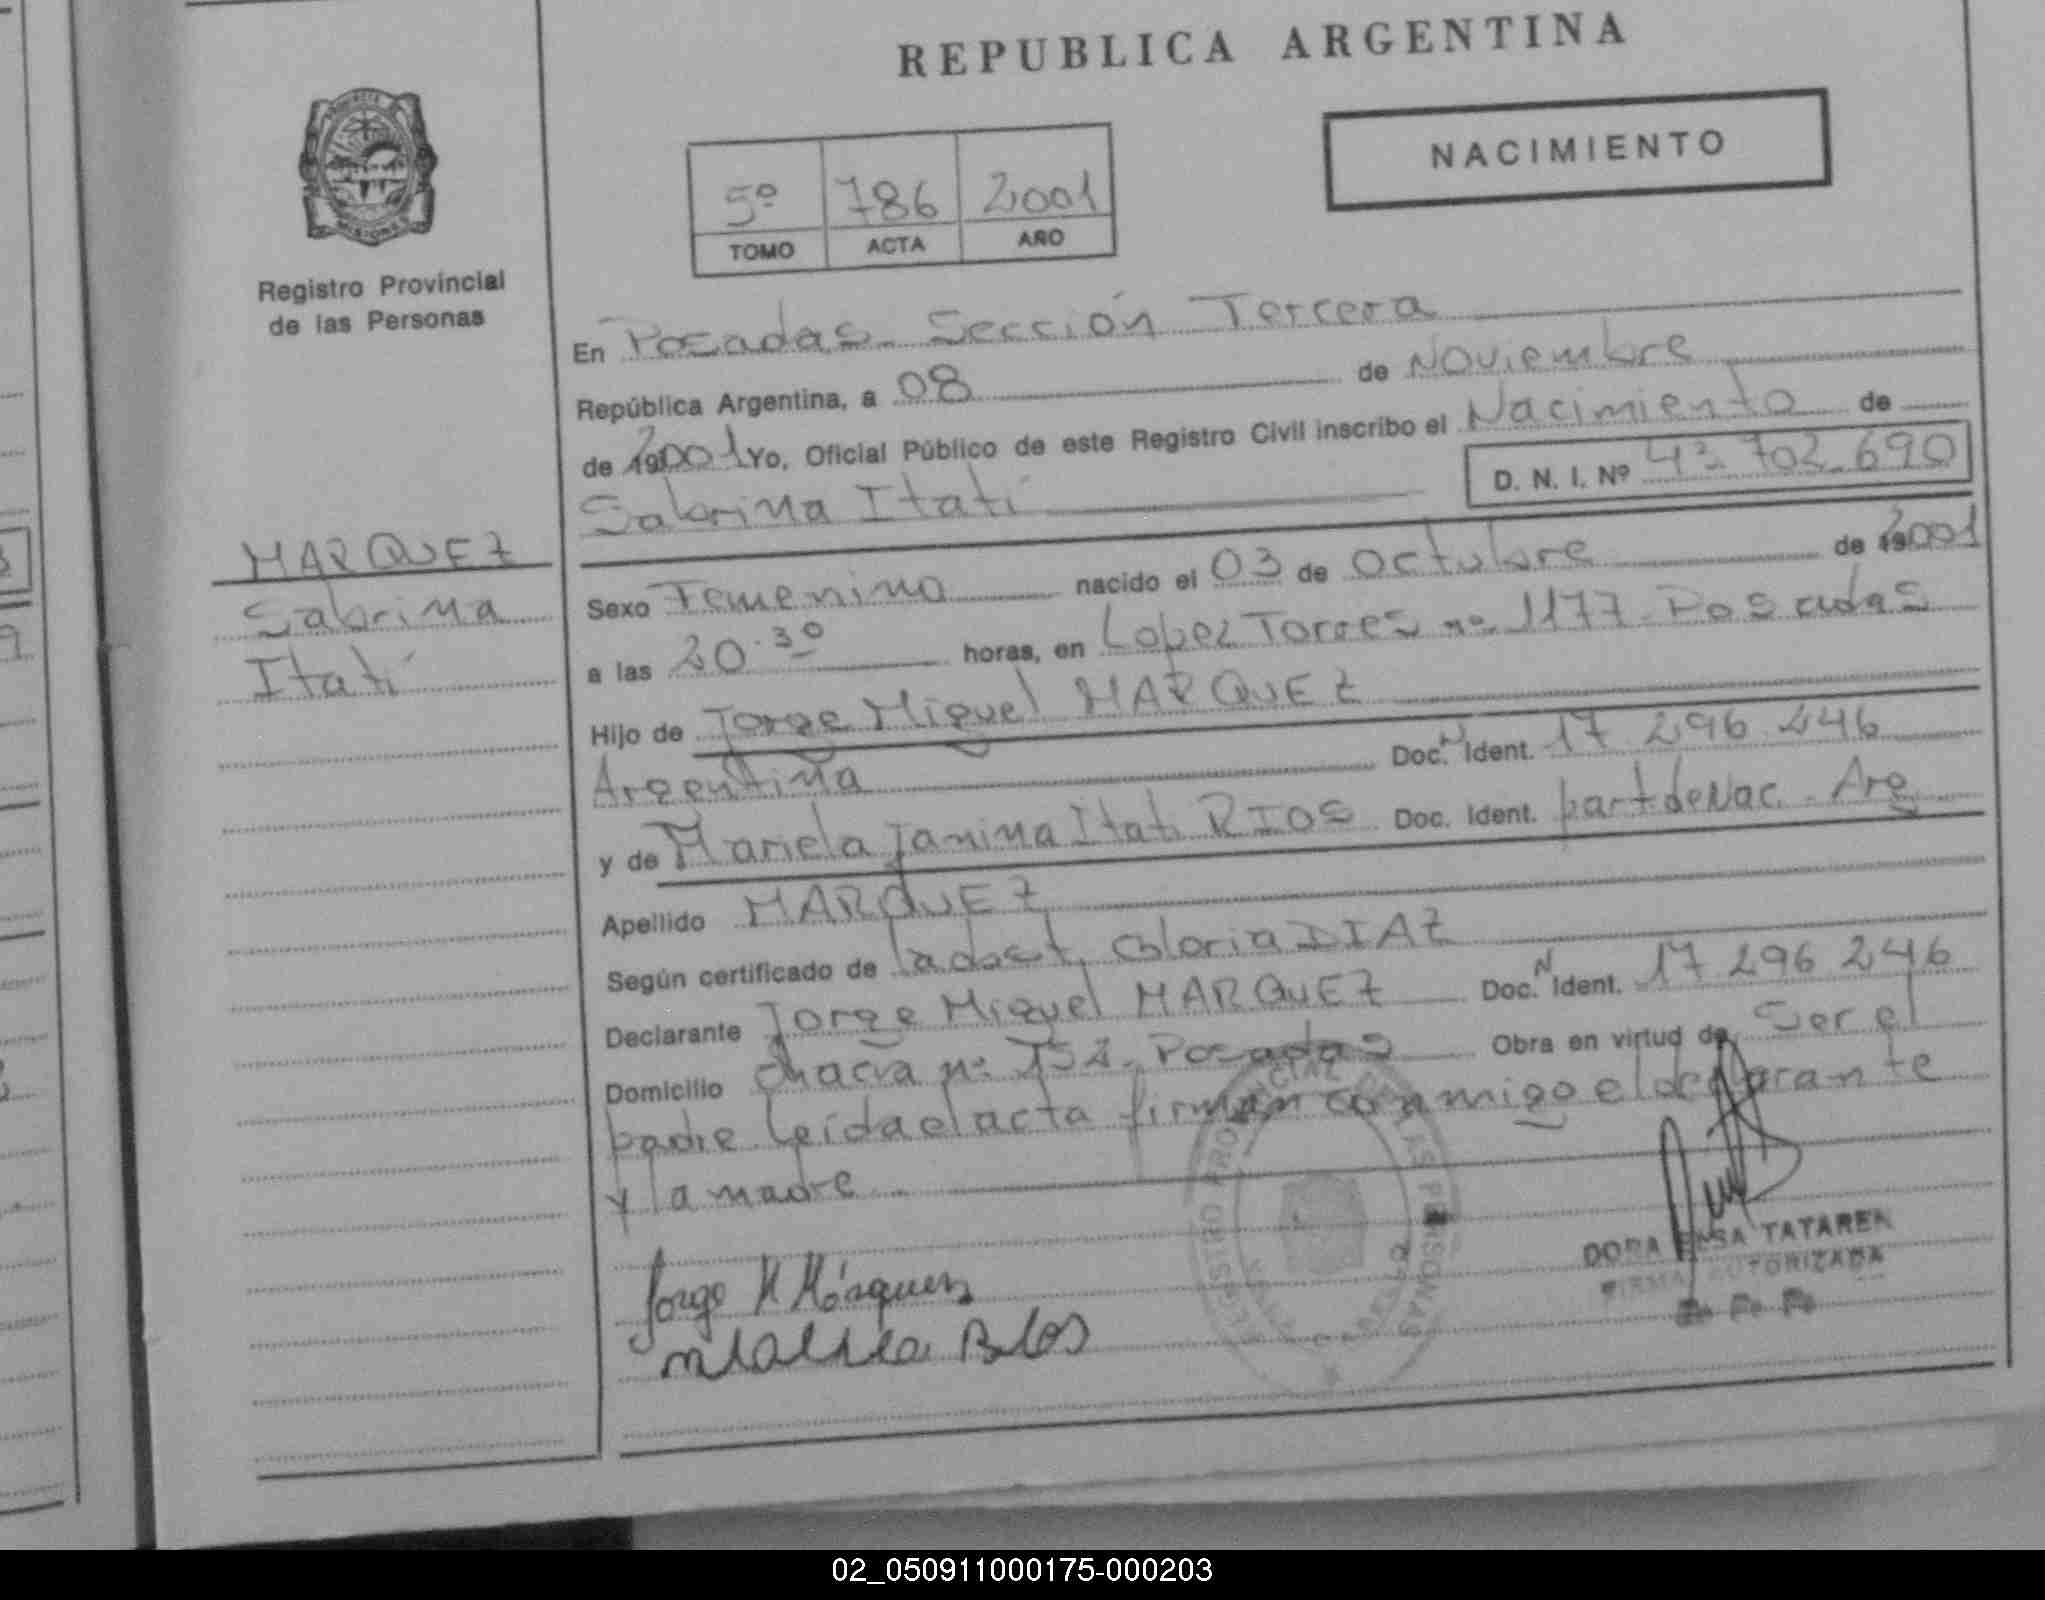 REPUBLICA ARGENTINA
NACIMIENTO
5º 786 2001
TOMO ACTA AÑO
Registro Provincial
de las Personas
MISIONES
MARQUEZ
Sabrina
Itatí
En Posadas Sección Tercera
República Argentina, a 08 de Noviembre
de 2001 Yo, Oficial Público de este Registro Civil inscribo el Nacimiento de
Sabrina Itatí D. N. I. Nº 43.702.690
Sexo Femenino nacido el 03 de Octubre de 2001
a las 20.30 horas, en Lopez Torres nº 1177 Posadas
Hijo de Jorge Miguel MARQUEZ
Argentina Doc. N Ident. 17 296 246
y de Mariela Janina Itatí RIOS Doc. Ident. part de Nac. Arg
Apellido MARQUEZ
Según certificado de la obst. Gloria DIAZ
Declarante Jorge Miguel MARQUEZ Doc. N Ident. 17 296 246
Domicilio Chacra nº 152 Posadas Obra en virtud de Ser el
padre Leída el acta firman conmigo el declarante
y la madre
Jorge M Márquez
DORA ELSA TATAREN
FIRMA AUTORIZADA
R. P. P.
02_050911000175-000203